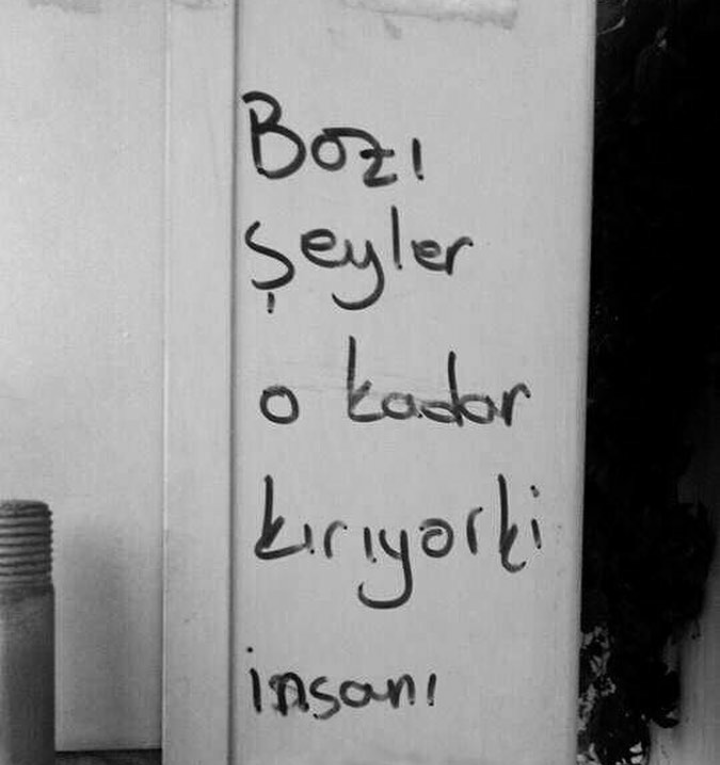 Bazı
şeyler
o kadar
kırıyorki
insanı